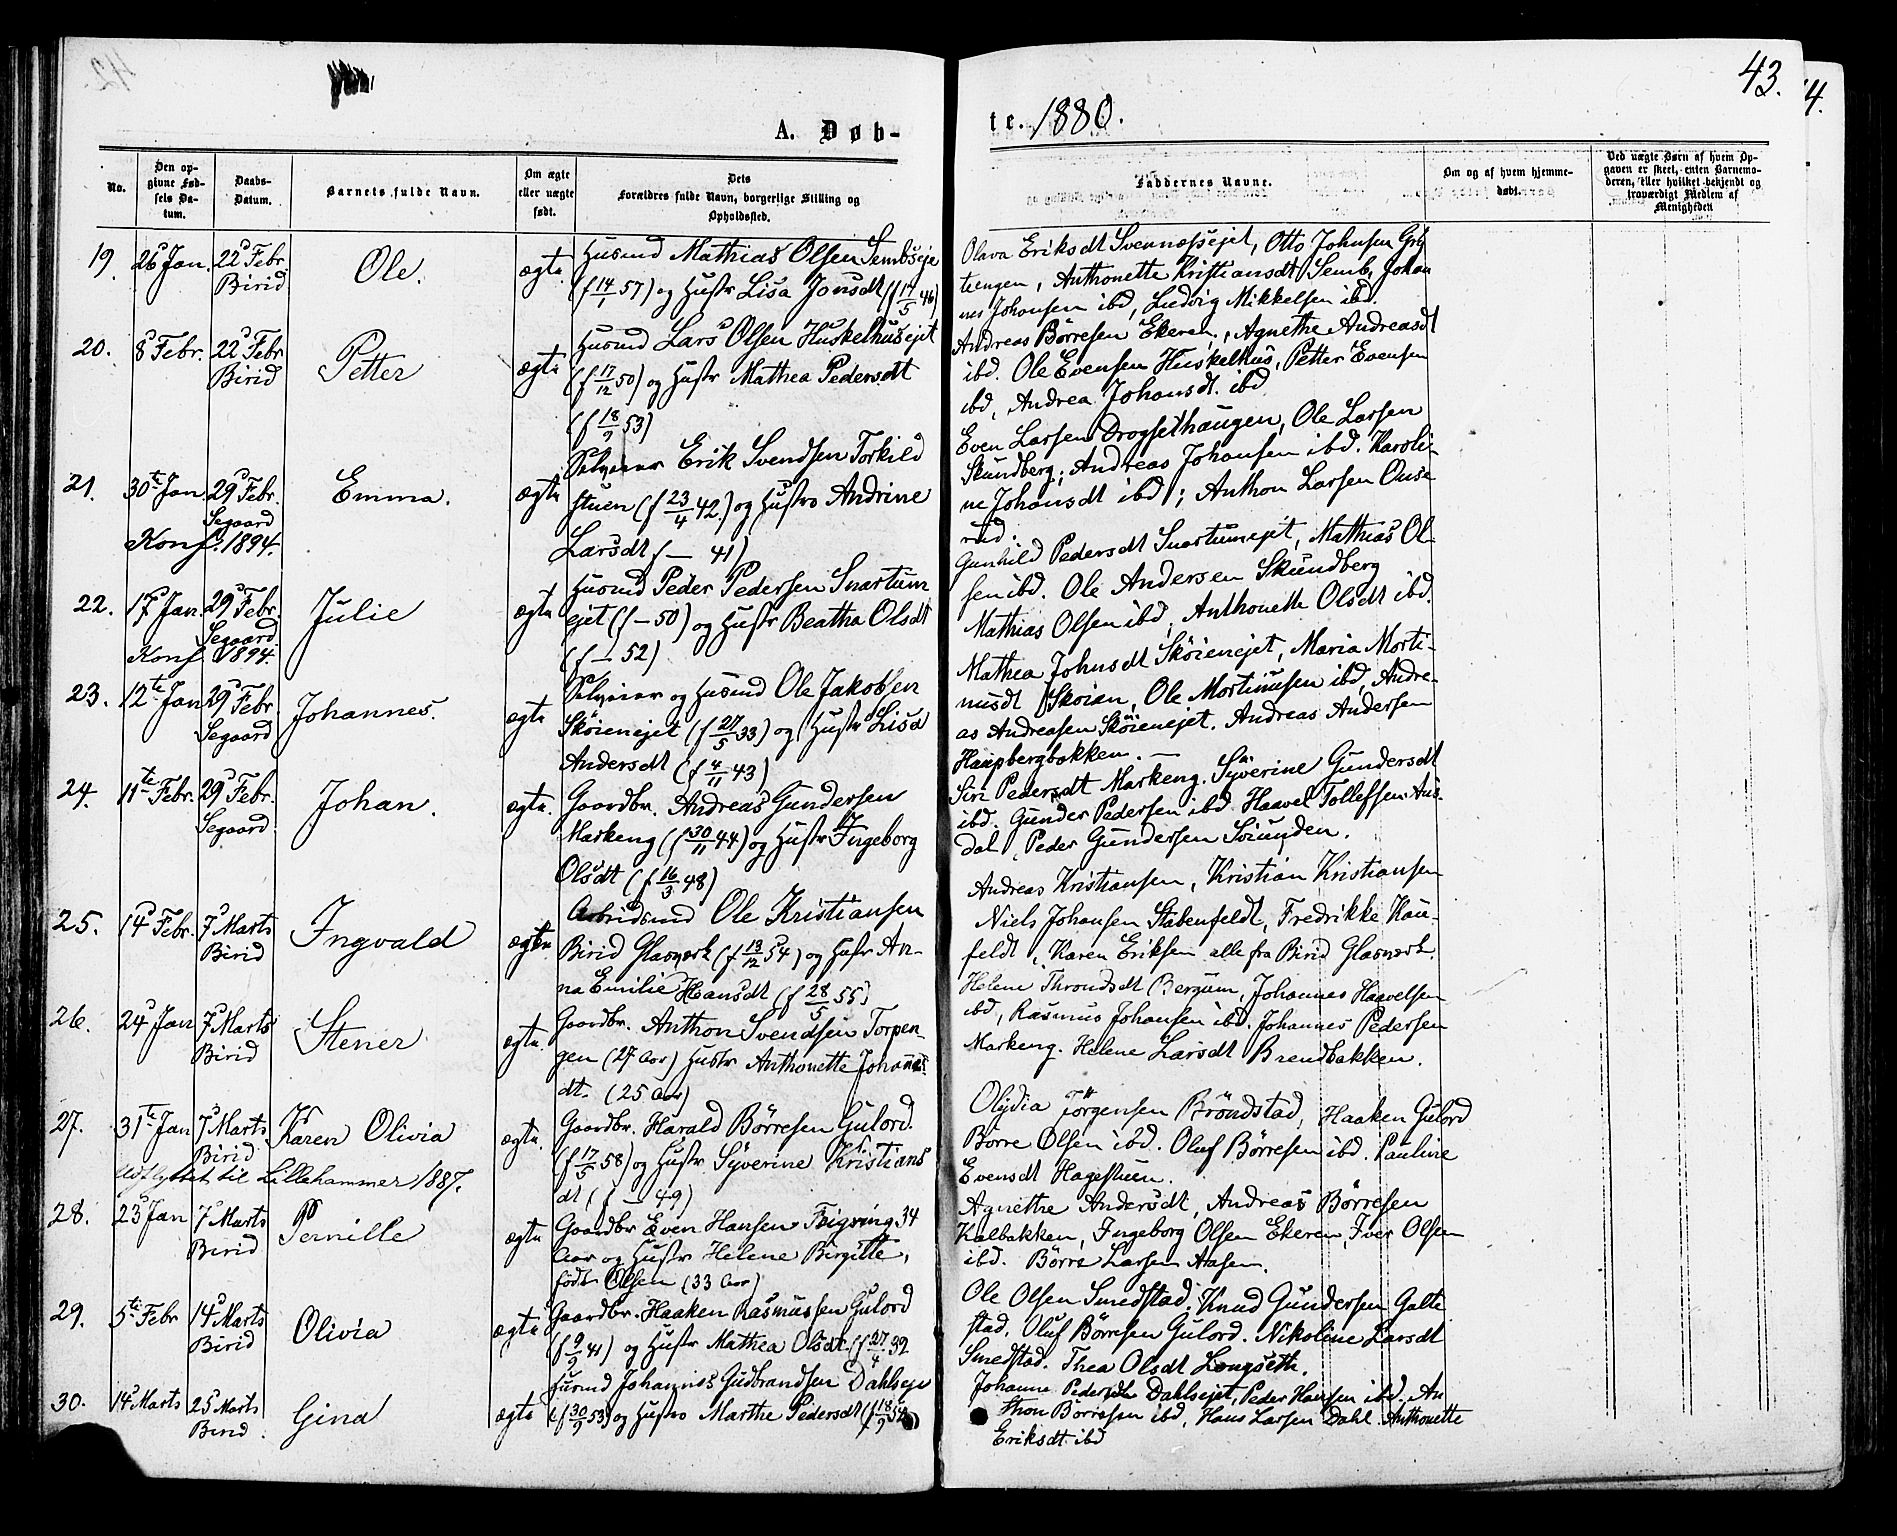 43.
A. Døb-
te. 1880.
No.
Den op-
givne Fød-
sels Da-
tum.
Daabs-
Datum.
Barnets fulde Navn.
Om ægte
eller uægte
født.
Dets
Forældres fulde Navn, borgerlige Stilling og
Opholdssted.
Faddernes Navne.
Om og af hvem hjemme-
døbt.
Ved uægte Børn af hvem Op-
gaven er skeet, enten Barnemo-
deren, eller hvilket bekjendt og
troværdigt Medlem af
Menigheden
19. 26 Jan. 22 Febr Birid
Ole.
ægte
Husmd Mathias Olsen Sembseje
(f 14/1 57) og Hustr Lisa Jonsdt
Olava Eriksdt Svennæssejet, Otto Johnsen
tiengen, Anthonette Kristiansdt Semb, Johan
nes Johansen ibd, Ludvig Mikkelsen ibd.
20. 8 Febr. 22 Febr Birid
Petter
ægte
Husmd Lars Olsen Huskelhusejet
(f 17/12 50) og Hustr Mathea Pedersdt
(f 18/9 53)
Andreas Børresen Ekeren, Agnethe Andreasdt
ibd. Ole Evensen Huskelhus, Petter Evensen
ibd, Andrea Johansdt. ibd
21. 30te Jan 29 Febr. Segaard
Konf. 1894.
Emma.
ægte
Selveier Erik Svendsen Torkild
stuen (f 23/4 42.) og Hustro Andrine
Larsdt (— 41)
Even Larsen Drogsethaugen, Ole Larsen
Skundberg; Andreas Johansen ibd. Karoli-
ne Johansdt ibd; Anthon Larsen Ouse
rud.
22. 17 Jan. 29 Febr. Segaard
Konf 1894.
Julie
ægte
Husmd Peder Pedersen Snartum
ejet (f — 50) og Hustr Beatha Olsdt
(f — 52)
Gunhild Pedersdt Snartumejet, Mathias Ol-
sen ibd. Ole Andersen Skundberg
Mathias Olsen ibd, Anthonette Olsdt ibd.
23. 12te Jan 29 Febr. Segaard
Johannes.
ægte
Selveier og Husmd Ole Jakobsen
Sköienejet (f 27/5 33) og Hustr Lisa
Andersdt (f 4/11 43)
Mathea Johnsdt Sköienejet, Maria Morti-
nusdt Skoien, Ole Mortinusen ibd, Andre-
as Andreasen Sköienejet. Andreas Andersen
Haugbergbakken. —
24. 11te Febr. 29 Febr. Segaard
Johan.
ægte.
Gaardbr. Andreas Gundersen
Markeng (f 30/11 44) og Hustr Ingeborg
Olsdt (f 16/3 48)
Siri Pedersdt Markeng. Syverine Gundersdt
ibd. Gunder Pedersen ibd. Haavel Tollefsen Aus-
dal, Peder Gundersen
25. 14 Febr. 7 Marts Birid
Ingvald
ægte
Arbeidsmd Ole Kristiansen
Birid Glasværk (f 13/12 54) og Hustr An-
na Emilie Hansdt (f 28/5 55)
Andreas Kristiansen, Kristian Kristiansen
Niels Johansen Stabenfeldt, Fredrikke Kau-
feldt, Karen Eriksen alle fra Birid Glasværk.
26. 24 Jan 7 Marts Birid
Stener
ægte.
Gaardbr. Anthon Svendsen Torpen-
gen (27 Aar) Hustr Anthonette Johannes
dt. (25 Aar)
Helene Throndsdt Bergum, Johannes Haavelsen
ibd, Rasmus Johansen ibd. Johannes Pedersen
Markeng. Helene Larsdt Brendbakken.
27. 31te Jan 7 Marts Birid
Karen Olivia
Udflyttet til Lillehammer 1887.
ægte.
Gaardbr. Harald Börresen Gulord.
(f 17/5 58) og Hustr Syverine Kristians
dt (f — 49)
Olydia Jörgensen Bröndstad, Haaken Gulord
Borre Olsen ibd. Oluf Börresen ibd. Pauline
Evensdt Hagestuen.
28. 23 Jan 7 Marts Birid
Pernille
ægte
Gaardbr Even Hansen Feigring 34
Aar og Hustr Helene Birgitte,
födt Olsen (33 Aar)
Agnethe Andersdt, Andreas Börresen
Kalbakken, Ingeborg Olsen Ekeren, Iver Olsen
ibd. Börre Larsen Aasen.
29. 5te Febr 14 Marts Birid
Olivia
ægte
Gaardbr. Haaken Rasmussen Gulord
(f 9/2 41) og Hustr Mathea Olsdt. (f 27/4 39
Ole Olsen Smedstad. Knud Gundersen Galte
stad, Oluf Börresen Gulord. Nikoline Larsdt
Smedstad. Thea Olsdt Longseth.
30. 14 Marts 25 Marts Birid.
Gina
ægte
Husmd Johannes Gudbrandsen Dahlseje
(f 30/9 53) og Hustro Marthe Pedersdt
Johanne Pedersdt Dahlsejet, Peder Hansen ibd. An
thon Börresen ibd, Hans Larsen Dahl. Anthonette
Eriksdt ibd